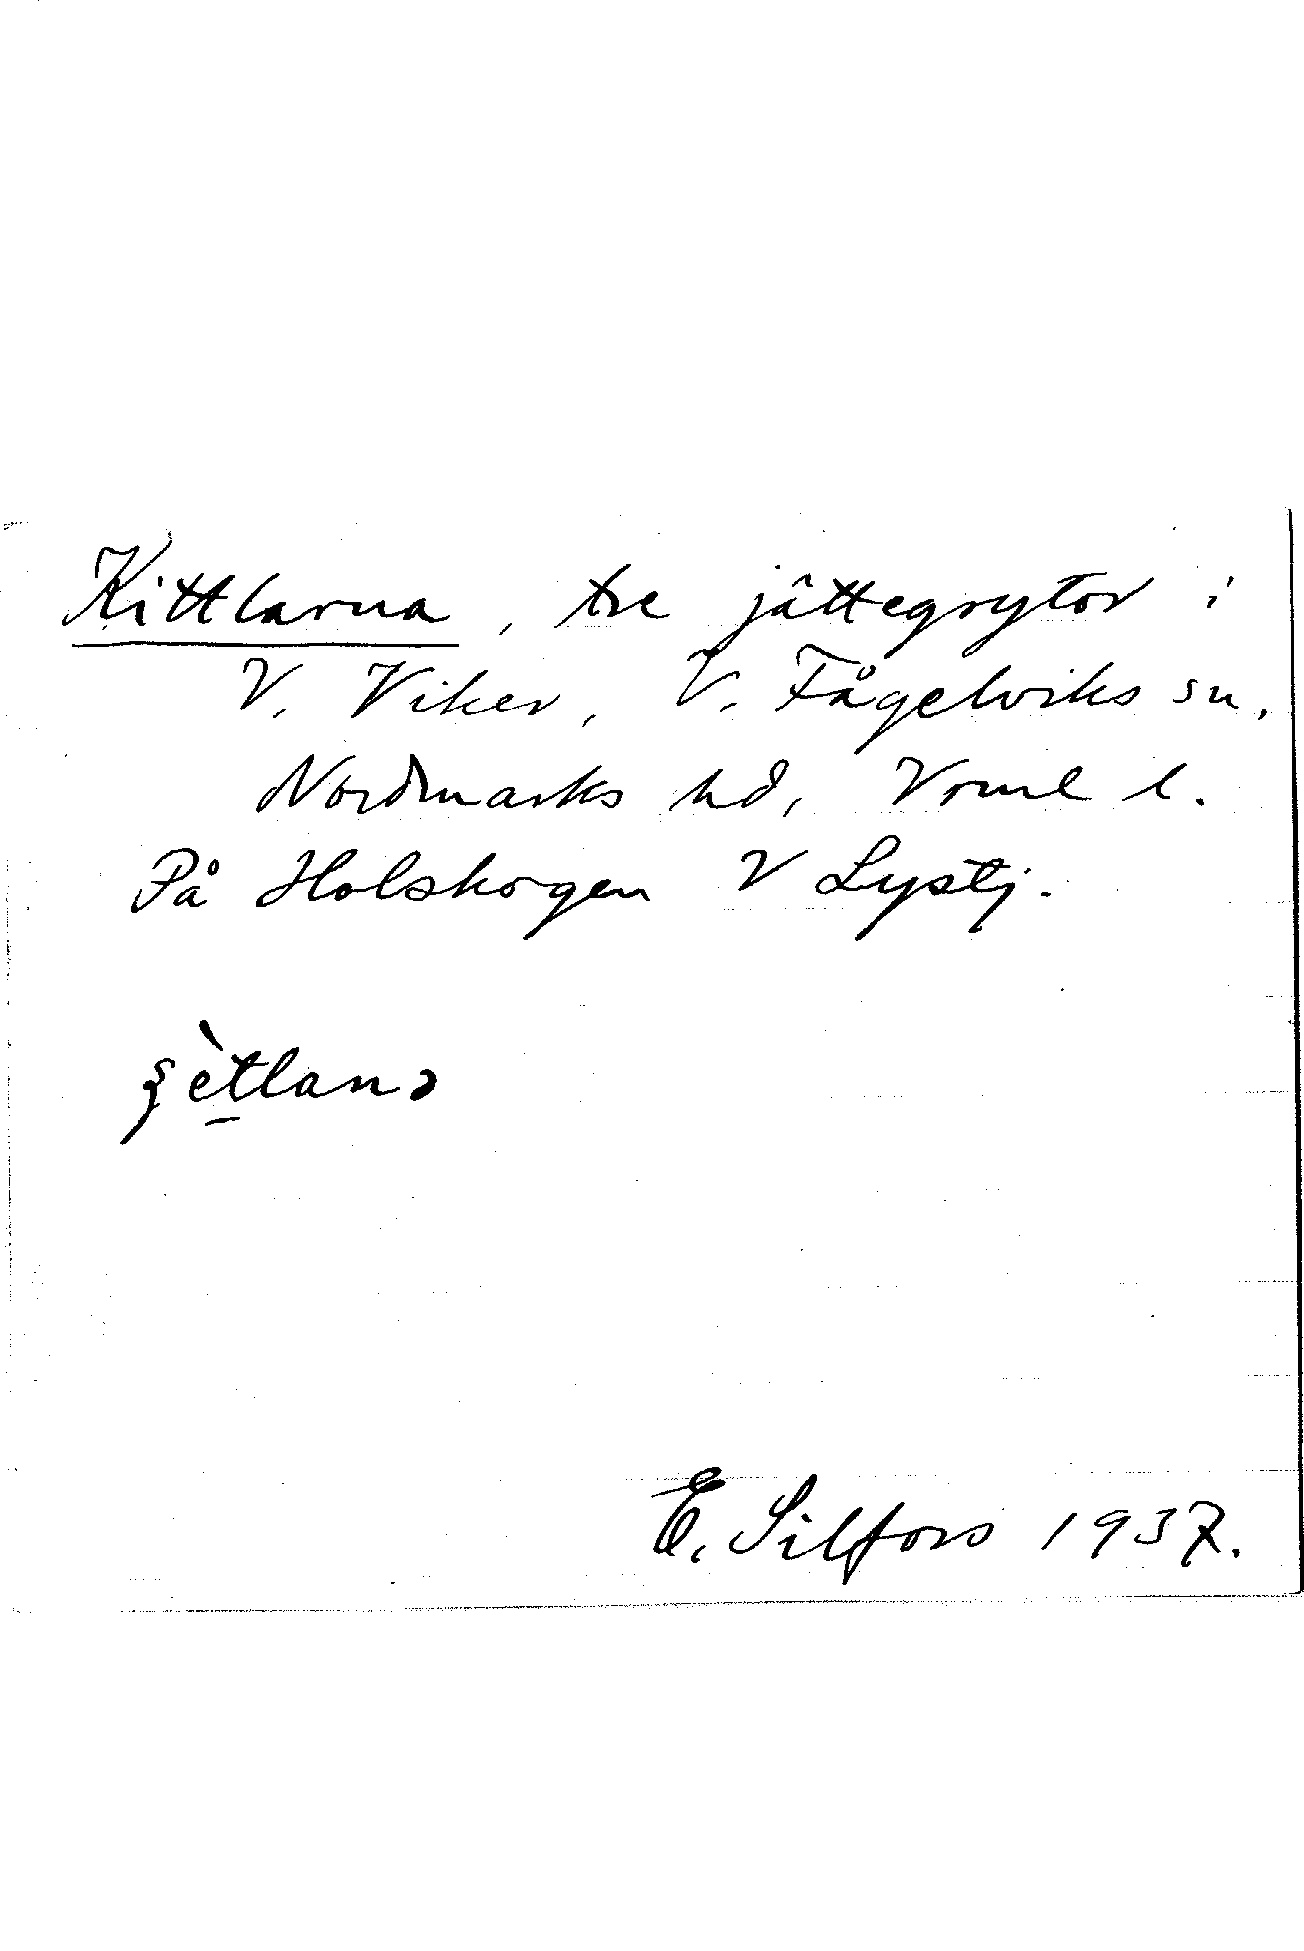 Kittlarna, tre jättegrytor i
V. Viker, V. Fågelviks sn,
Nordmarks hd, Vrml l.
På Holskogen V Lystj.
ètlanə
E. Silfors 1937.